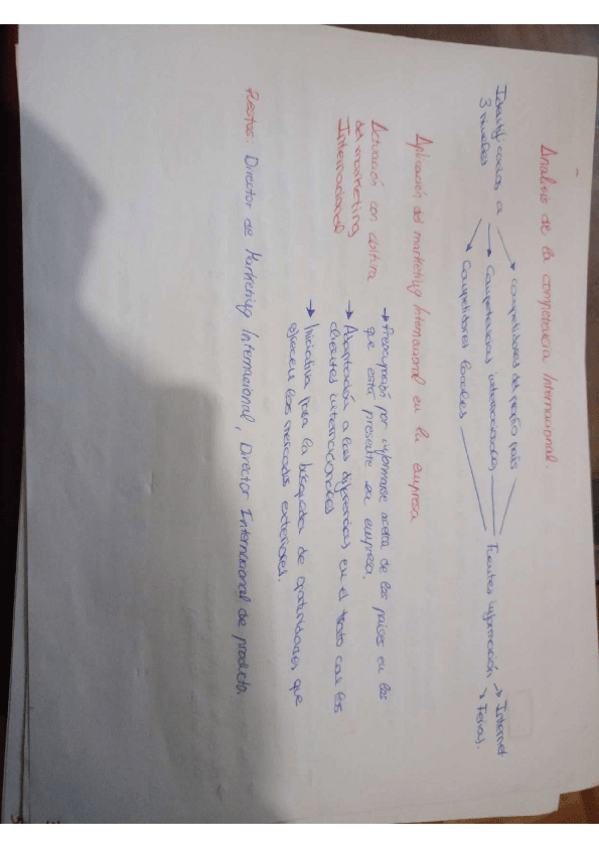 Análisis de la competencia Internacional.
Identificación a 3 niveles
→ Competidores del propio país
→ Competencias internacionales
→ Competidores locales
Fuentes información → Internet
→ Ferias.
Aplicación del marketing Internacional en la empresa
Actuación con cultura
del marketing
Internacional
→ Preocupación por informarse acerca de los países en los
que está presente su empresa.
→ Adaptación a las diferencias en el trato con los
clientes internacionales
→ Iniciativa para la búsqueda de oportunidades que
ofrecen los mercados exteriores.
Puestos: Director de Marketing Internacional, Director Internacional de producto